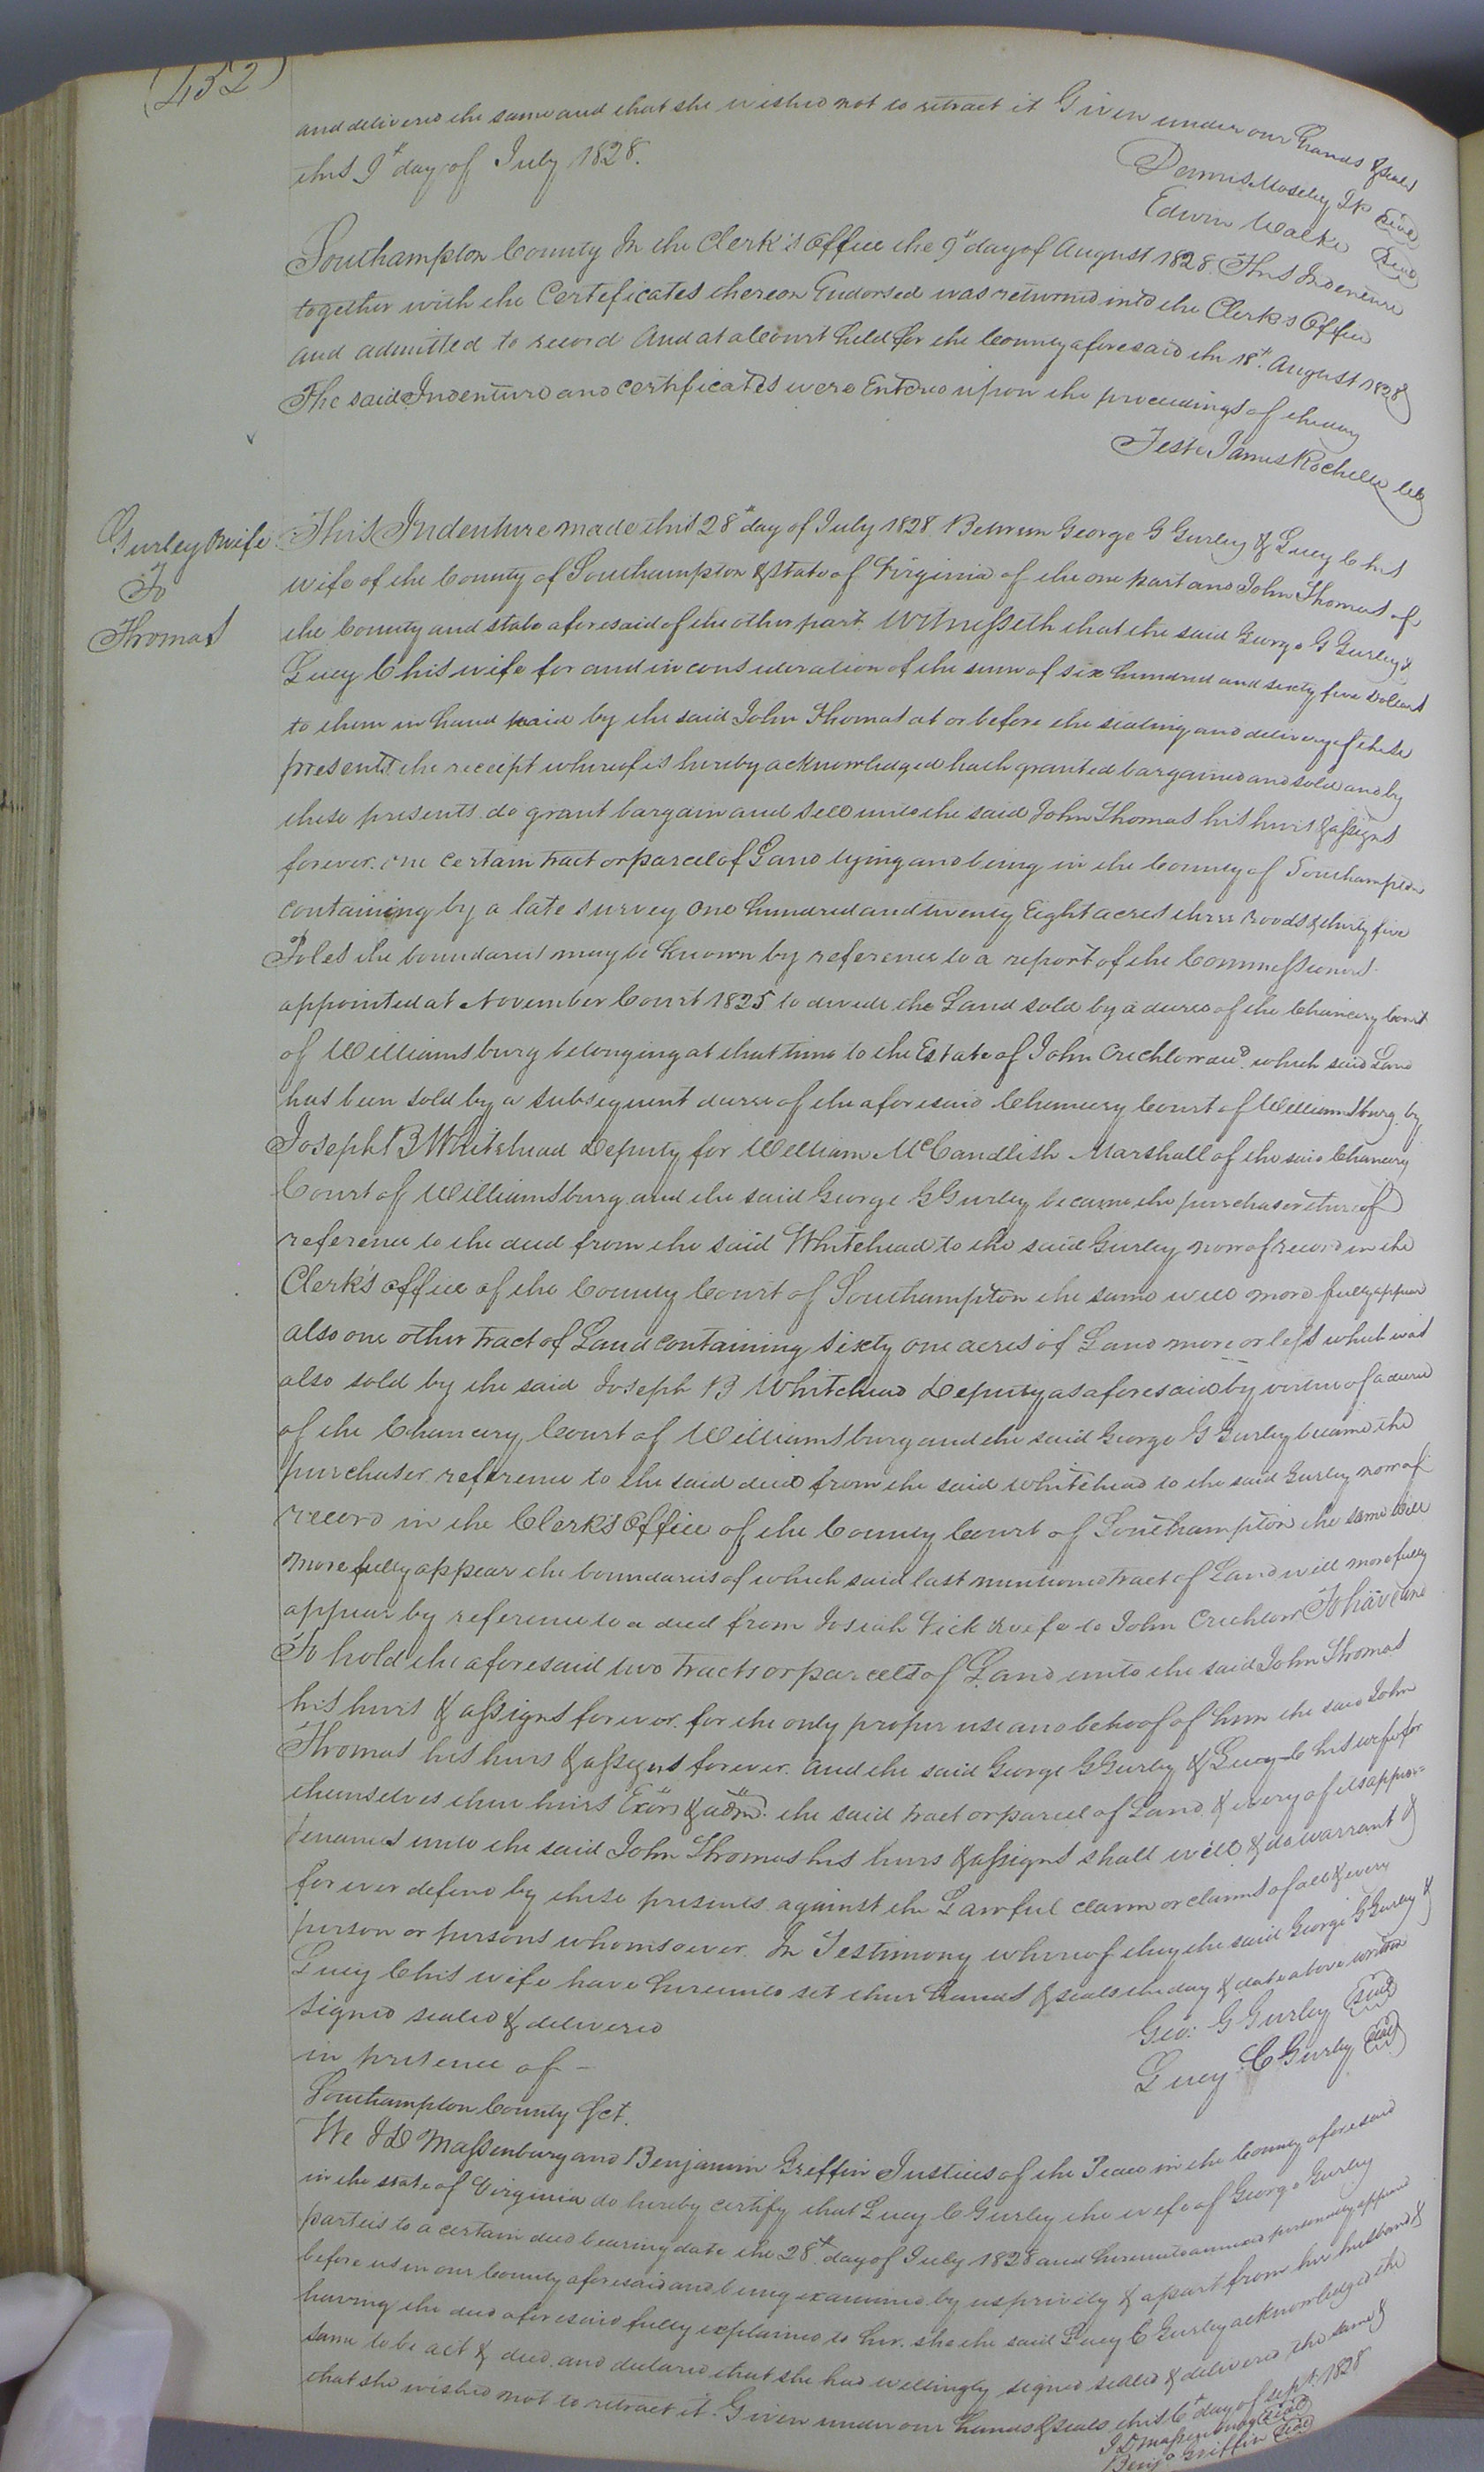 (452)
and delivered the same and that she wished not to retract it Given under our hands & seals
this 9th day of July 1828.
Dennis Moseley JP Seal
Edwin Walke Seal
Southampton County In the Clerk's Office the 9th day of August 1828. This Indenture
together with the Certeficates thereon Endorsed was returned into the Clerks Office
and admitted to record And at a Court held for the County aforesaid the 18th August 1828
The said Indenture and certificates were Entered upon the proceedings of the day
Teste James Rochelle Clk
Gurley & wife
To
Thomas
This Indenture made this 28th day of July 1828 Between George G Gurley & Lucy C his
wife of the County of Southampton & State of Virginia of the one part and John Thomas of
the County and state aforesaid of the other part Witnesseth that the said George G Gurley &
Lucy C his wife for and in consideration of the sum of six hundred and sixty five Dollars
to them in hand paid by the said John Thomas at or before the sealing and delivery of these
presents the receipt whereof is hereby acknowledged hath granted bargained and sold and by
these presents do grant bargain and sell unto the said John Thomas his heirs & assigns
forever. one certain tract or parcel of Land lying and being in the County of Southampton
containing by a late survey One hundred and twenty Eight acres three roods & thirty five
Poles the boundaries may be known by reference to a report of the Commessioners
appointed at November Court 1825 to divide the Land sold by a decree of the Chancery Court
of Williamsburg belonging at that time to the Estate of John Crichlow decd. which said Land
has been sold by a subsequent decree of the aforesaid Chancery Court of Williamsburg. by
Joseph B Whitehead Deputy for William McCandlish Marshall of the said Chancery
Court of Williamsburg and the said George G Gurley became the purchaser thereof
reference to the deed from the said Whitehead to the said Gurley now of record in the
Clerk's office of the County Court of Southampton the same will more fully appear
also one other tract of Land containing sixty one acres of Land more or less which was
also sold by the said Joseph B Whitehead Deputy as aforesaid by virtue of a decree
of the Chancery Court of Williamsburg and the said George G Gurley became the
purchaser. reference to the said deed from the said Whitehead to the said Gurley now of
record in the Clerk's Office of the County Court of Southampton the same will
more fully appear the boundaries of which said last mentioned tract of Land will more fully
appear by reference to a deed from Josiah Vick & wife to John Crichlow To have and
To hold the aforesaid two tracts or parcels of Land unto the said John Thomas
his heirs & assigns forever. for the only proper use and behoof of him the said John
Thomas his heirs & assigns forever. And the said George G Gurley & Lucy C his wife for
themselves their heirs Exors & adm. the said tract or parcel of Land & every of its appur=
tenances unto the said John Thomas his heirs & assigns shall will & do warrant &
forever defend by these presents. against the Lawful claim or claims of all & every
person or persons whomsoever. In Testimony whereof they the said George G Gurley &
Lucy C his wife have hereunto set their hands & seals the day & date above written
Signed sealed & delivered
in presence of —
Geo: G Gurley Seal
Lucy C Gurley Seal
Southampton County Sct.
We J D Massenburg and Benjamin Greffin Justices of the Peace in the County aforesaid
in the state of Virginia do hereby certify that Lucy C Gurley the wife of George Gurley
parteis to a certain deed bearing date the 28th day of July 1828 and hereunto annexed personally appeared
before us in our County aforesaid and being examined by us privily & apart from her husband &
having the deed aforesaid fully explained to her. she the said Lucy C Gurley acknowledged the
same to be act & deed and declared that she had willingly signed sealed & delivered the same &
that she wished not to retract it. Given under our hands & seals this 6th day of Sept. 1828
J D Massenburg Seal
Benja Griffin Seal